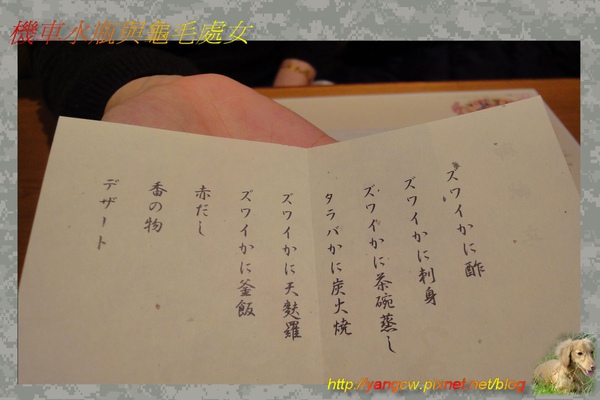 機車水瓶與龜毛處女
ズワイかに酢
ズワイかに刺身
ズワイかに茶碗蒸し
タラバかに炭火焼
ズワイかに天麩羅
ズワイかに釜飯
赤だし
香の物
デザート
http://yangcw.pixnet.net/blog